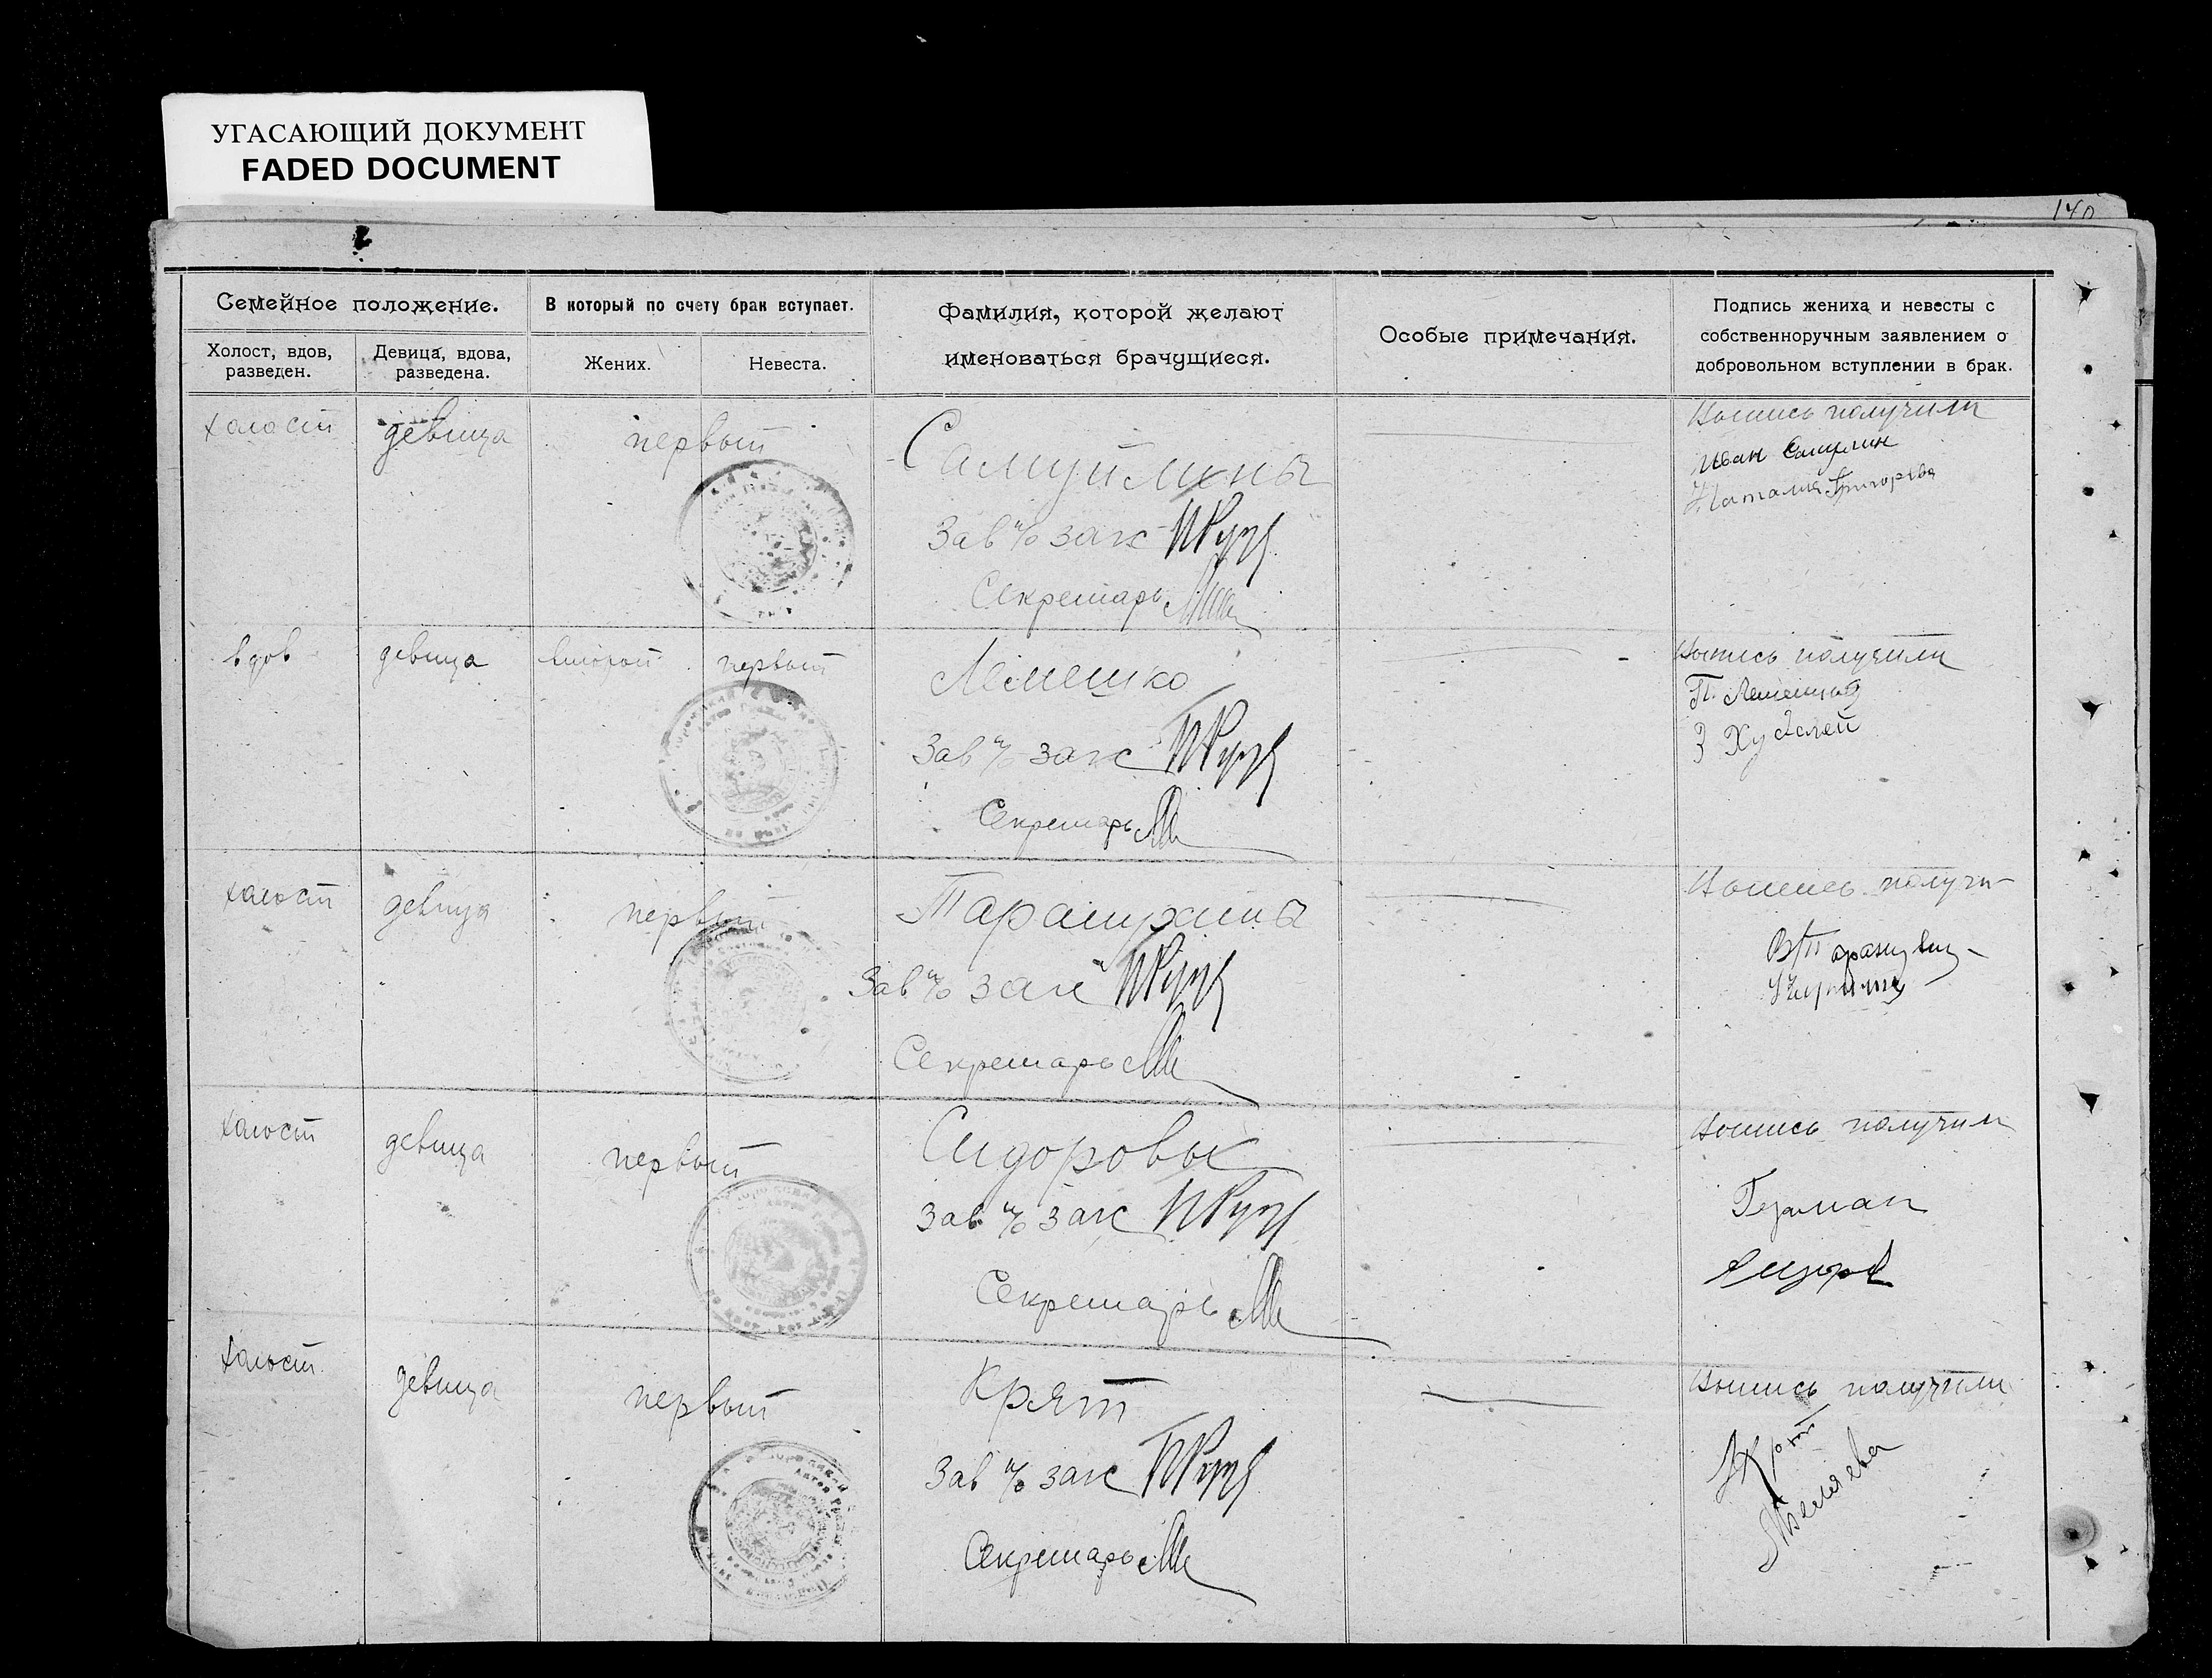 УГАСАЮЩИЙ ДОКУМЕНТ
FADED DOCUMENT
140
Семейное положение.
В который по счету брак вступает.
Фамилия, которой желают
именоваться брачущиеся.
Особые примечания.
Подпись жениха и невесты с
собственноручным заявлением о
добровольном вступлении в брак.
Холост, вдов,
разведен.
Девица, вдова,
разведена.
Жених.
Невеста.
холост девица первый
Самуйлины
Зав п/о загс
Секретарь
Выпись получили
Иван
Наталия Григорьева
вдов девица второй первый
Лемешко
Зав п/о загс
Секретарь
Выпись получили
П.
З
холост девица первый
Зав п/о загс
Секретарь
Выпись получи
холост девица первый
Сидоровы
Зав п/о загс
Секретарь
Выпись получили
Герман
холост девица первый
Крят
Зав п/о загс
Секретарь
Выпись получили